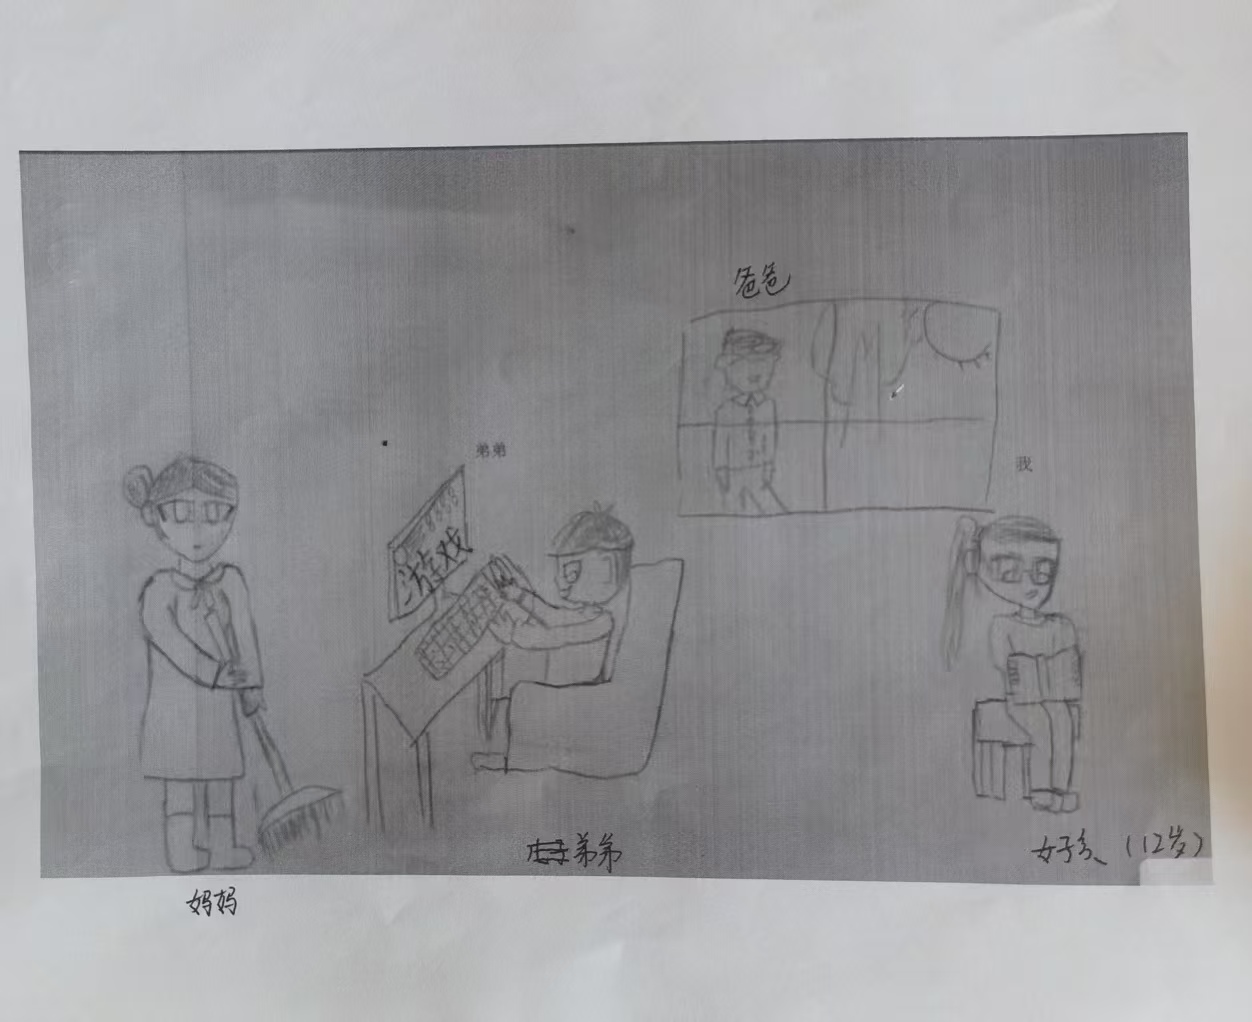 爸爸
弟弟
我
游戏
弟弟
女孩(12岁)
妈妈